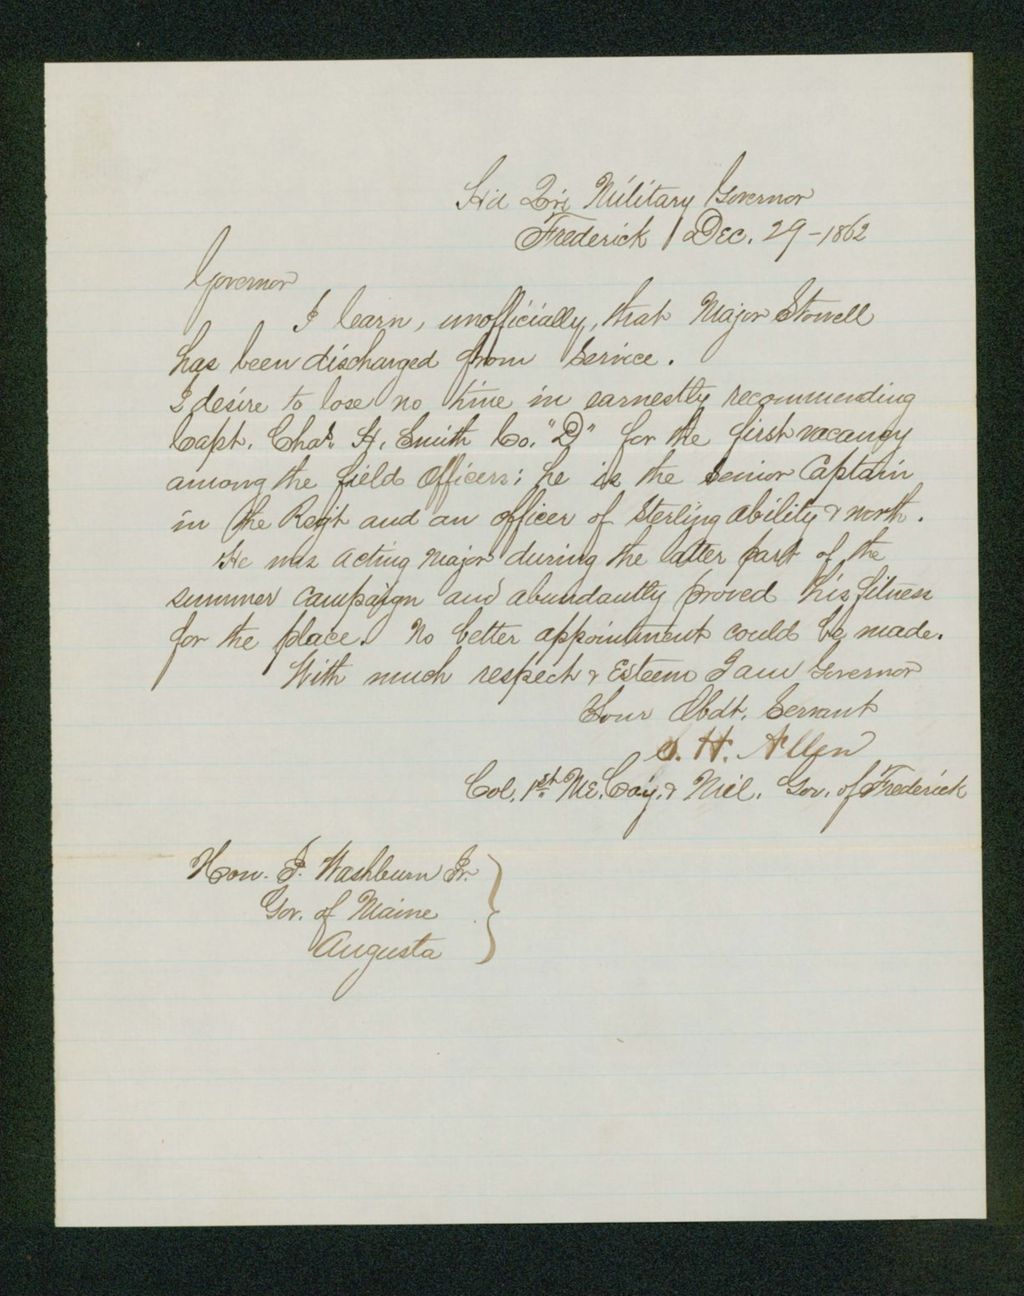 Hd Qrs Military Governor
Frederick Dec. 29 - 1862
Governor
I learn, unofficially, that Major Stowell
has been discharged from service.
I desire to lose no time in earnestly recommending
Capt. Chas. H. Smith Co. "D" for the first vacancy
among the field Officers; he is the senior Captain
in the Regt and an officer of sterling ability & worth.
He was acting Major during the latter part of the
summer campaign and abundantly proved his fitness
for the place. No better appointment could be made.
With much respect & Esteem I am Governor
Your Obdt. Servant
S. H. Allen
Col. 1st Me. Cav. & Mil. Gov. of Frederick
Hon. I. Washburn Jr.
Gov. of Maine
Augusta